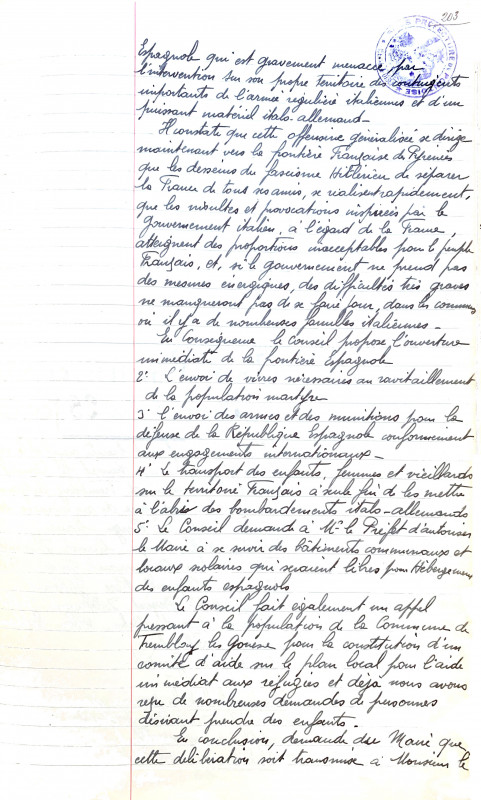 203
Espagnole qui est gravement menacée par
l'intervention sur son propre territoire des contingents
importants de l'armée régulière italiennes et d'un
puissant matériel italo-allemand-
Il constate que cette offensive généralisée se dirige
maintenant vers la frontière Française des Pyrénées
que les desseins du fascisme Hitlérien de séparer
la France de tous ses amis, se réalisent rapidement,
que les insultes et provocations inspirées par le
Gouvernement italien, à l'égard de la France,
atteignent des proportions inacceptables pour le peuple
Français, et, si le gouvernement ne prend pas
des mesures énergiques, des difficultés très graves
ne manqueront pas de se faire jour, dans les communes
où il y a de nombreuses familles italiennes-
En Conséquence le Conseil propose l'ouverture
immédiate de la frontière Espagnole
2° L'envoi de vivres nécessaires au ravitaillement
de la population martyre
3° l'envoi des armes et des munitions pour la
défense de la République Espagnole conformément
aux engagements internationaux-
4° Le transport des enfants, femmes et vieillards
sur le territoire Français à seule fin de les mettre
à l'abri des bombardements italo-allemands
5° Le Conseil demande à Mr le Préfet d'autoriser
le Maire à se servir des bâtiments communaux et
locaux scolaires qui seraient libres pour Hébergement
des enfants espagnols
Le Conseil fait également un appel
pressant à la population de la Commune de
Tremblay les Gonesse pour la constitution d'un
comité d'aide sur le plan local pour l'aide
immédiat aux réfugiés et déjà nous avons
reçu de nombreuses demandes de personnes
désirant prendre des enfants-
En conclusion, demande du Maire que
cette délibération soit transmise à Monsieur le